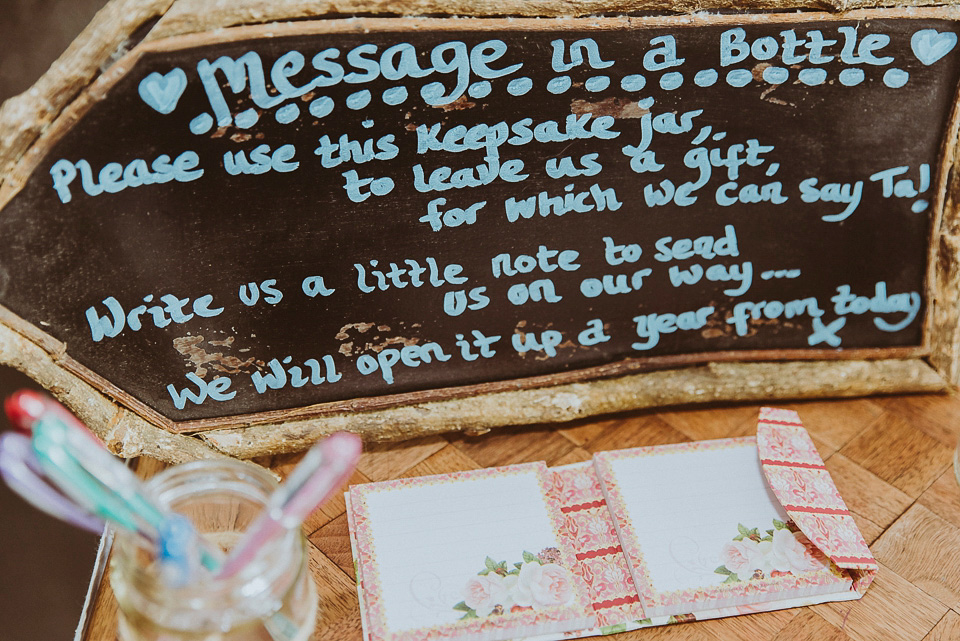 Message in a Bottle
Please use this Keepsake jar,
to leave us a gift,
for which we can say Ta!
Write us a little note to send
us on our way...
We will open it up a year from today
x